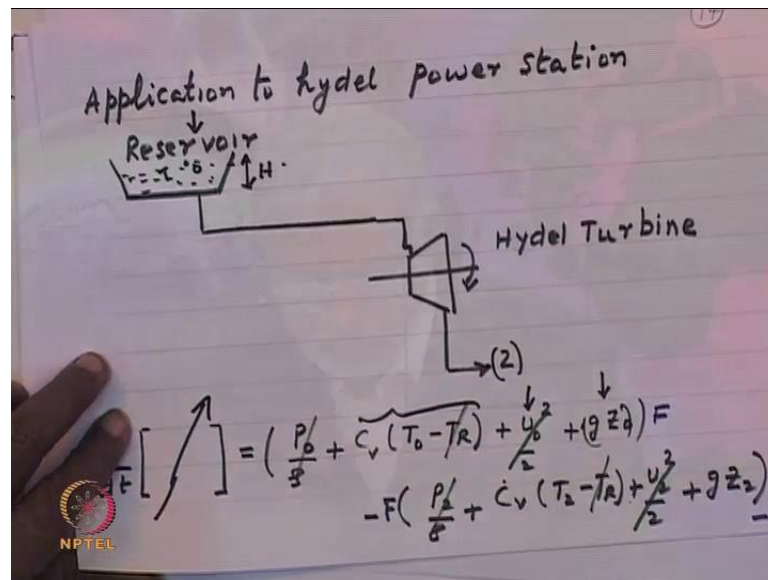 14
Application to hydel power station
Reservoir
H
Hydel Turbine
(2)
[ ] = ( P0/ρ + Cv (T0 - TR) + u0²/2 + (g Z0) F
- F( P2/ρ + Cv (T2 - TR) + u2²/2 + g Z2)
NPTEL